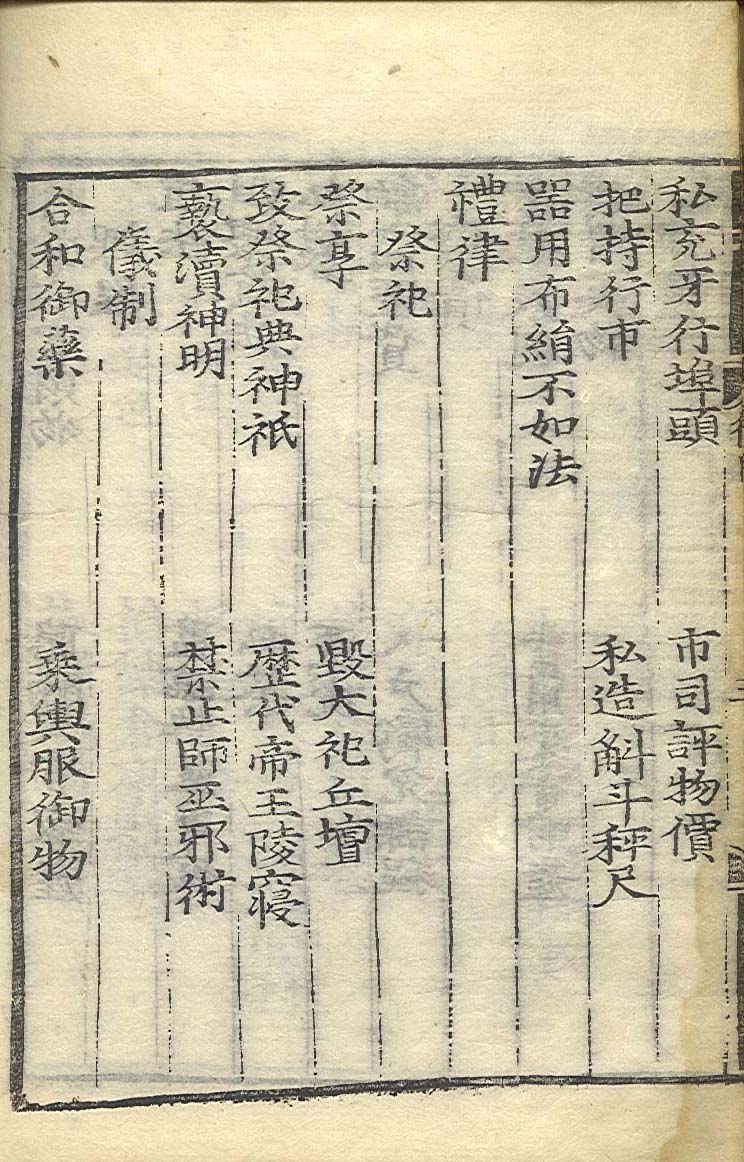 私充牙行埠頭　市司評物價
把持行市　私造斛斗秤尺
器用布絹不如法
禮律
祭祀
祭享　毀大祀丘壇
致祭祀典神祇　歷代帝王陵寢
褻瀆神明　禁止師巫邪術
儀制
合和御藥　乘輿服御物